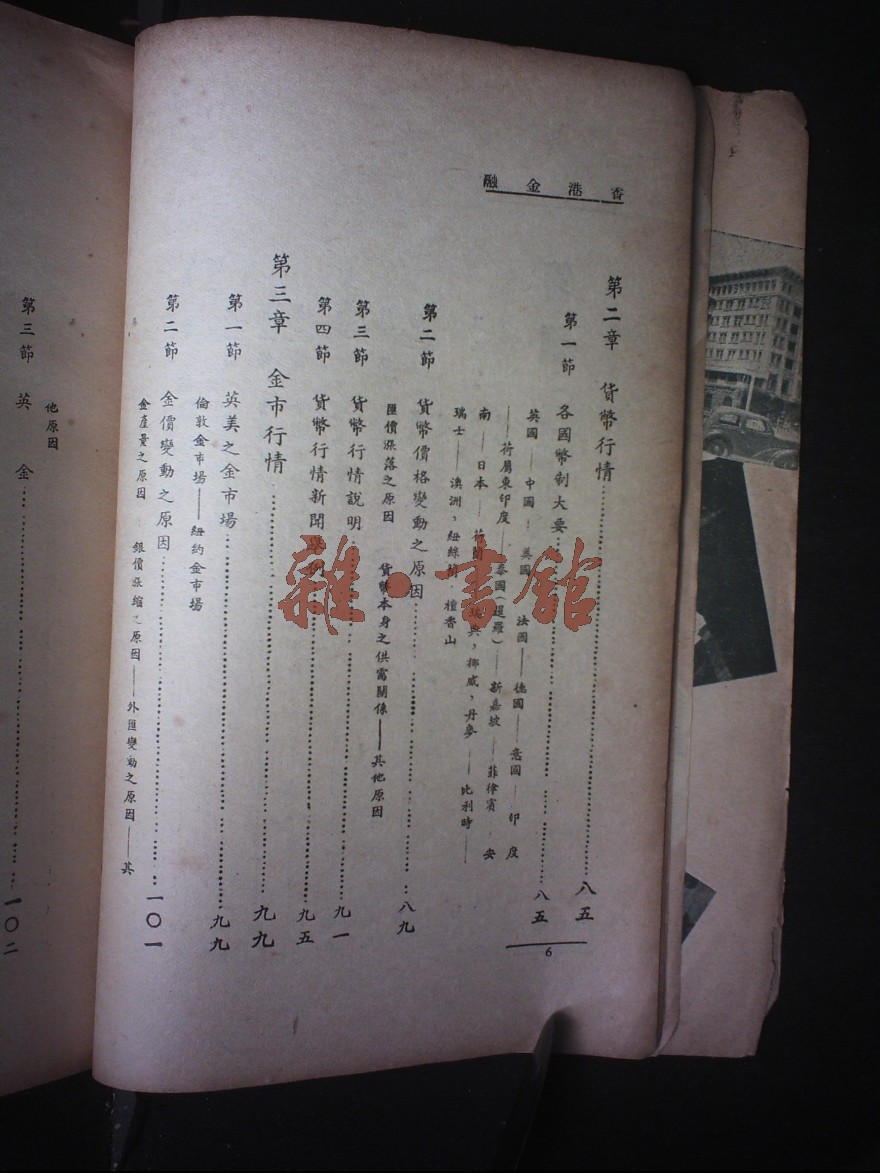 香港金融
第二章 貨幣行情……八五
第一節 各國幣制大要……八五
英國——中國——美國——法國——德國——意國——印度
——荷屬東印度——泰國(暹羅)——新嘉坡——菲律賓——安
南——日本——荷蘭——典,挪威,丹麥——比利時——
瑞士——澳洲,紐絲蘭,檀香山
第二節 貨幣價格變動之原因……八九
匯價漲落之原因——貨幣本身之供需關係——其他原因
第三節 貨幣行情說明……九一
第四節 貨幣行情新聞舉例……九五
第三章 金市行情……九九
第一節 英美之金市場……九九
倫敦金市場——紐約金市場
第二節 金價變動之原因……一〇一
金產量之原因——銀價漲縮之原因——外匯變動之原因——其
他原因
第三節 英金……一〇二
6
雜·書館